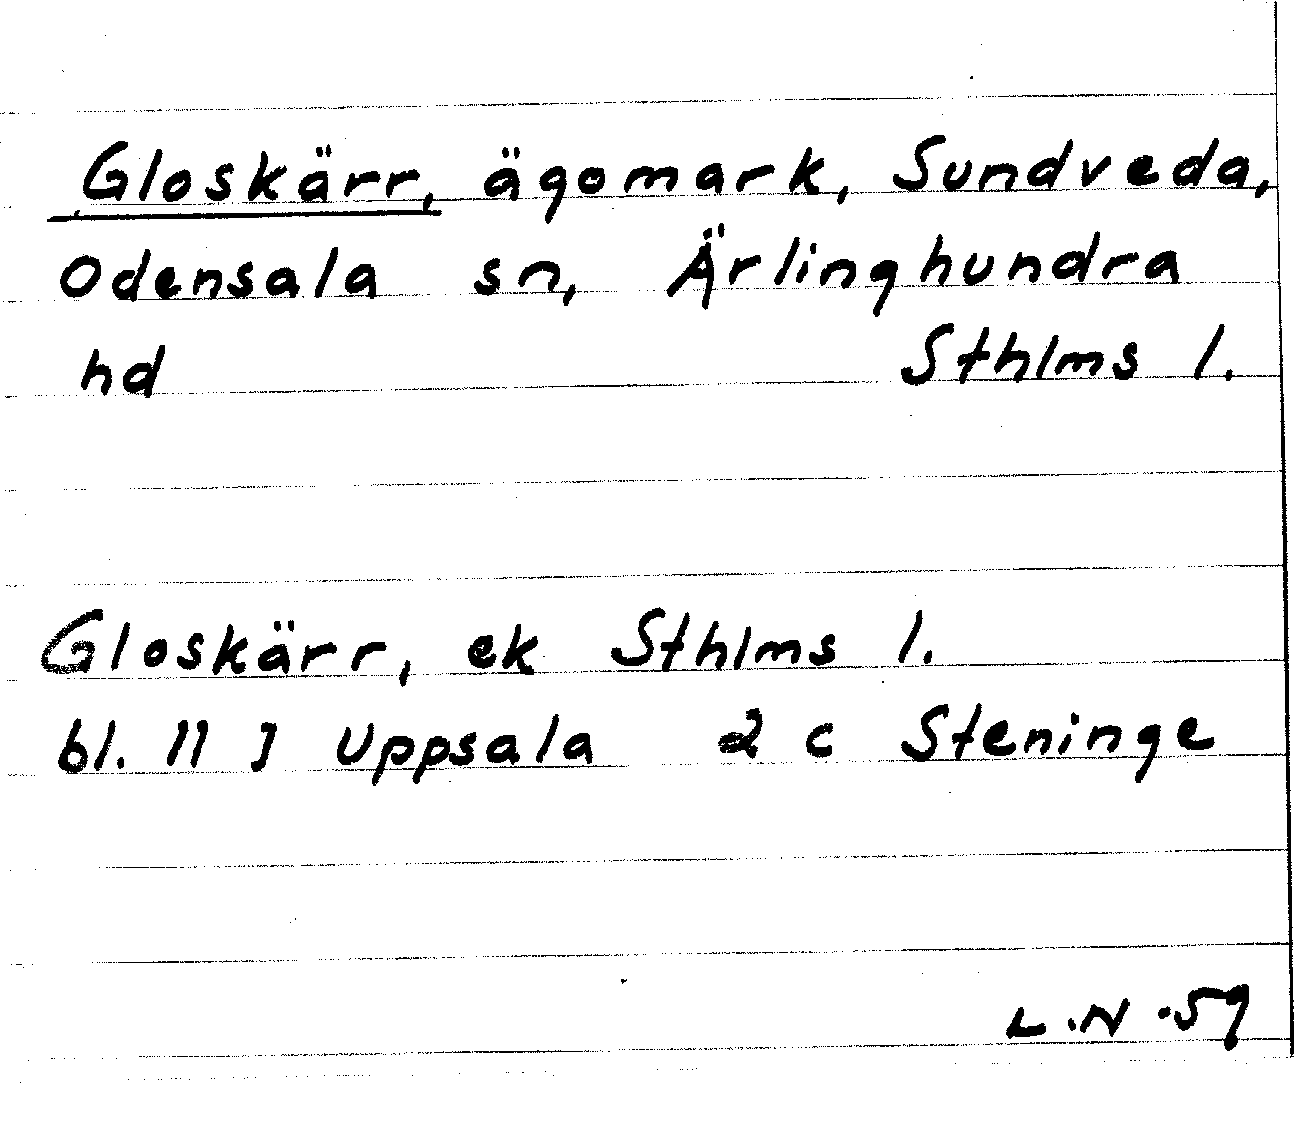 Gloskärr, ägomark, Sundveda,
Odensala sn, Ärlinghundra
hd Sthlms l.
Gloskärr, ek Sthlms l.
bl. 11 J Uppsala 2 c Steninge
L.N.59